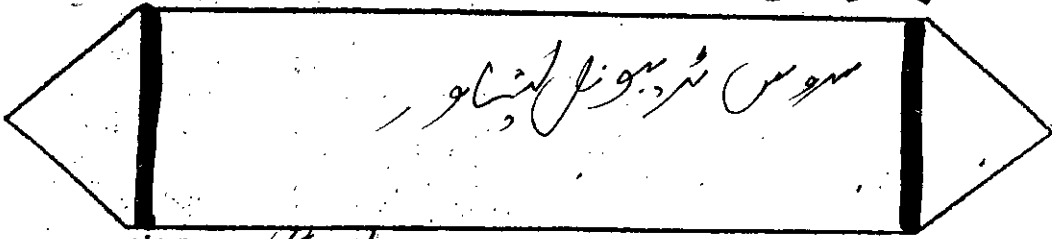 سروس ٹریبونل پشاور